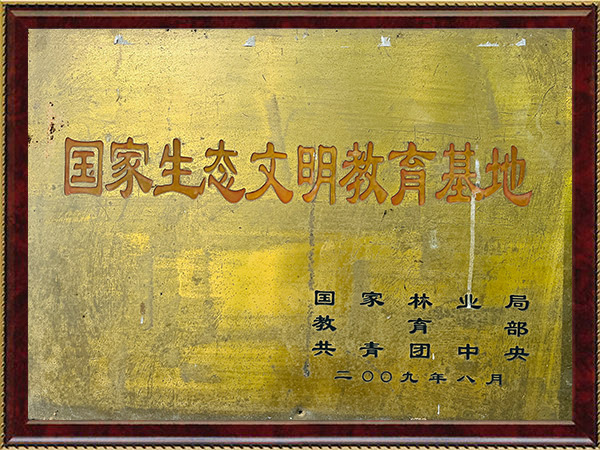 国家生态文明教育基地
国家林业局
教育部
共青团中央
二〇〇九年八月